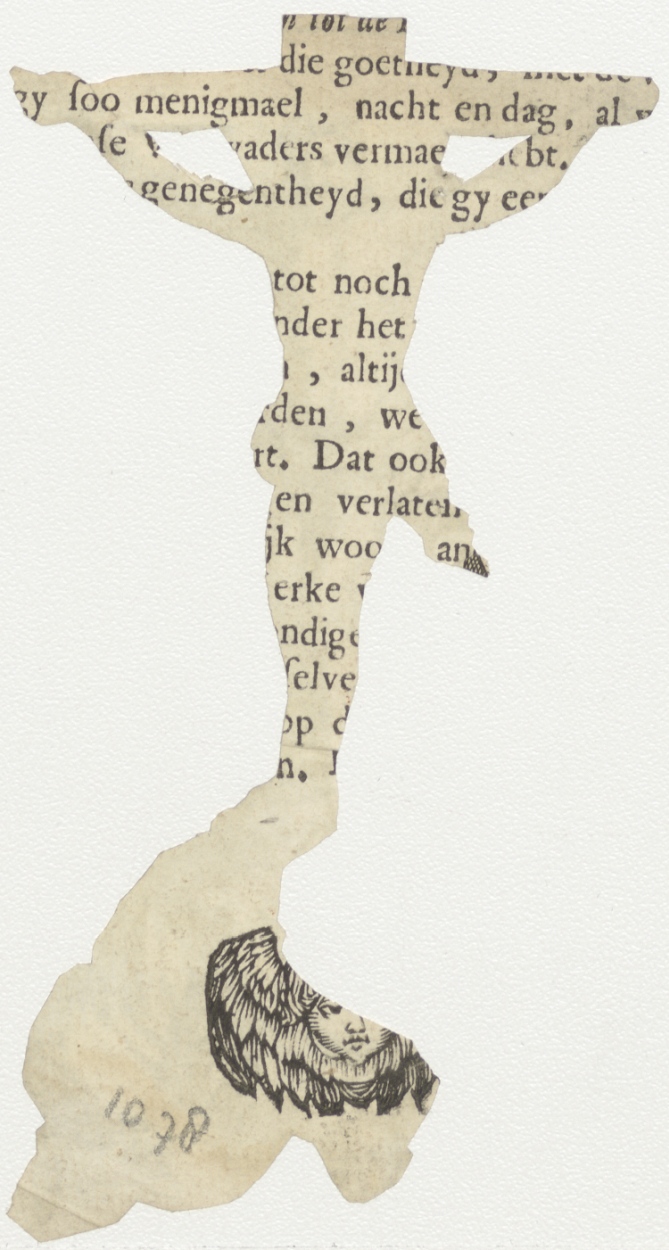 tot de
die goetheyd, met de
gy ſoo menigmael, nacht en dag, al
vaders vermae hebt.
genegentheyd, die gy een
tot noch
nder het
, altij
rden, we
rt. Dat ook
en verlaten
jk woo an
erke
ndige
ſelve
op d
n.
1078